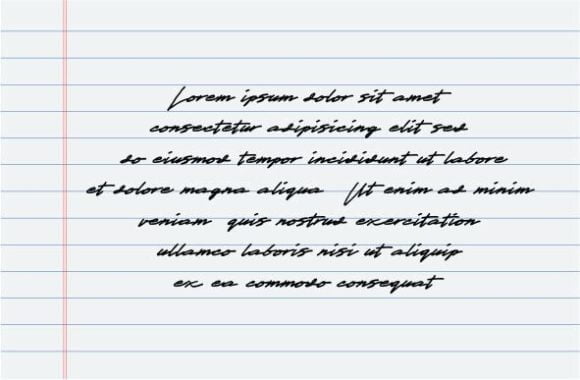 Lorem ipsum dolor sit amet
consectetur adipisicing elit sed
do eiusmod tempor incididunt ut labore
et dolore magna aliqua Ut enim ad minim
veniam quis nostrud exercitation
ullamco laboris nisi ut aliquip
ex ea commodo consequat